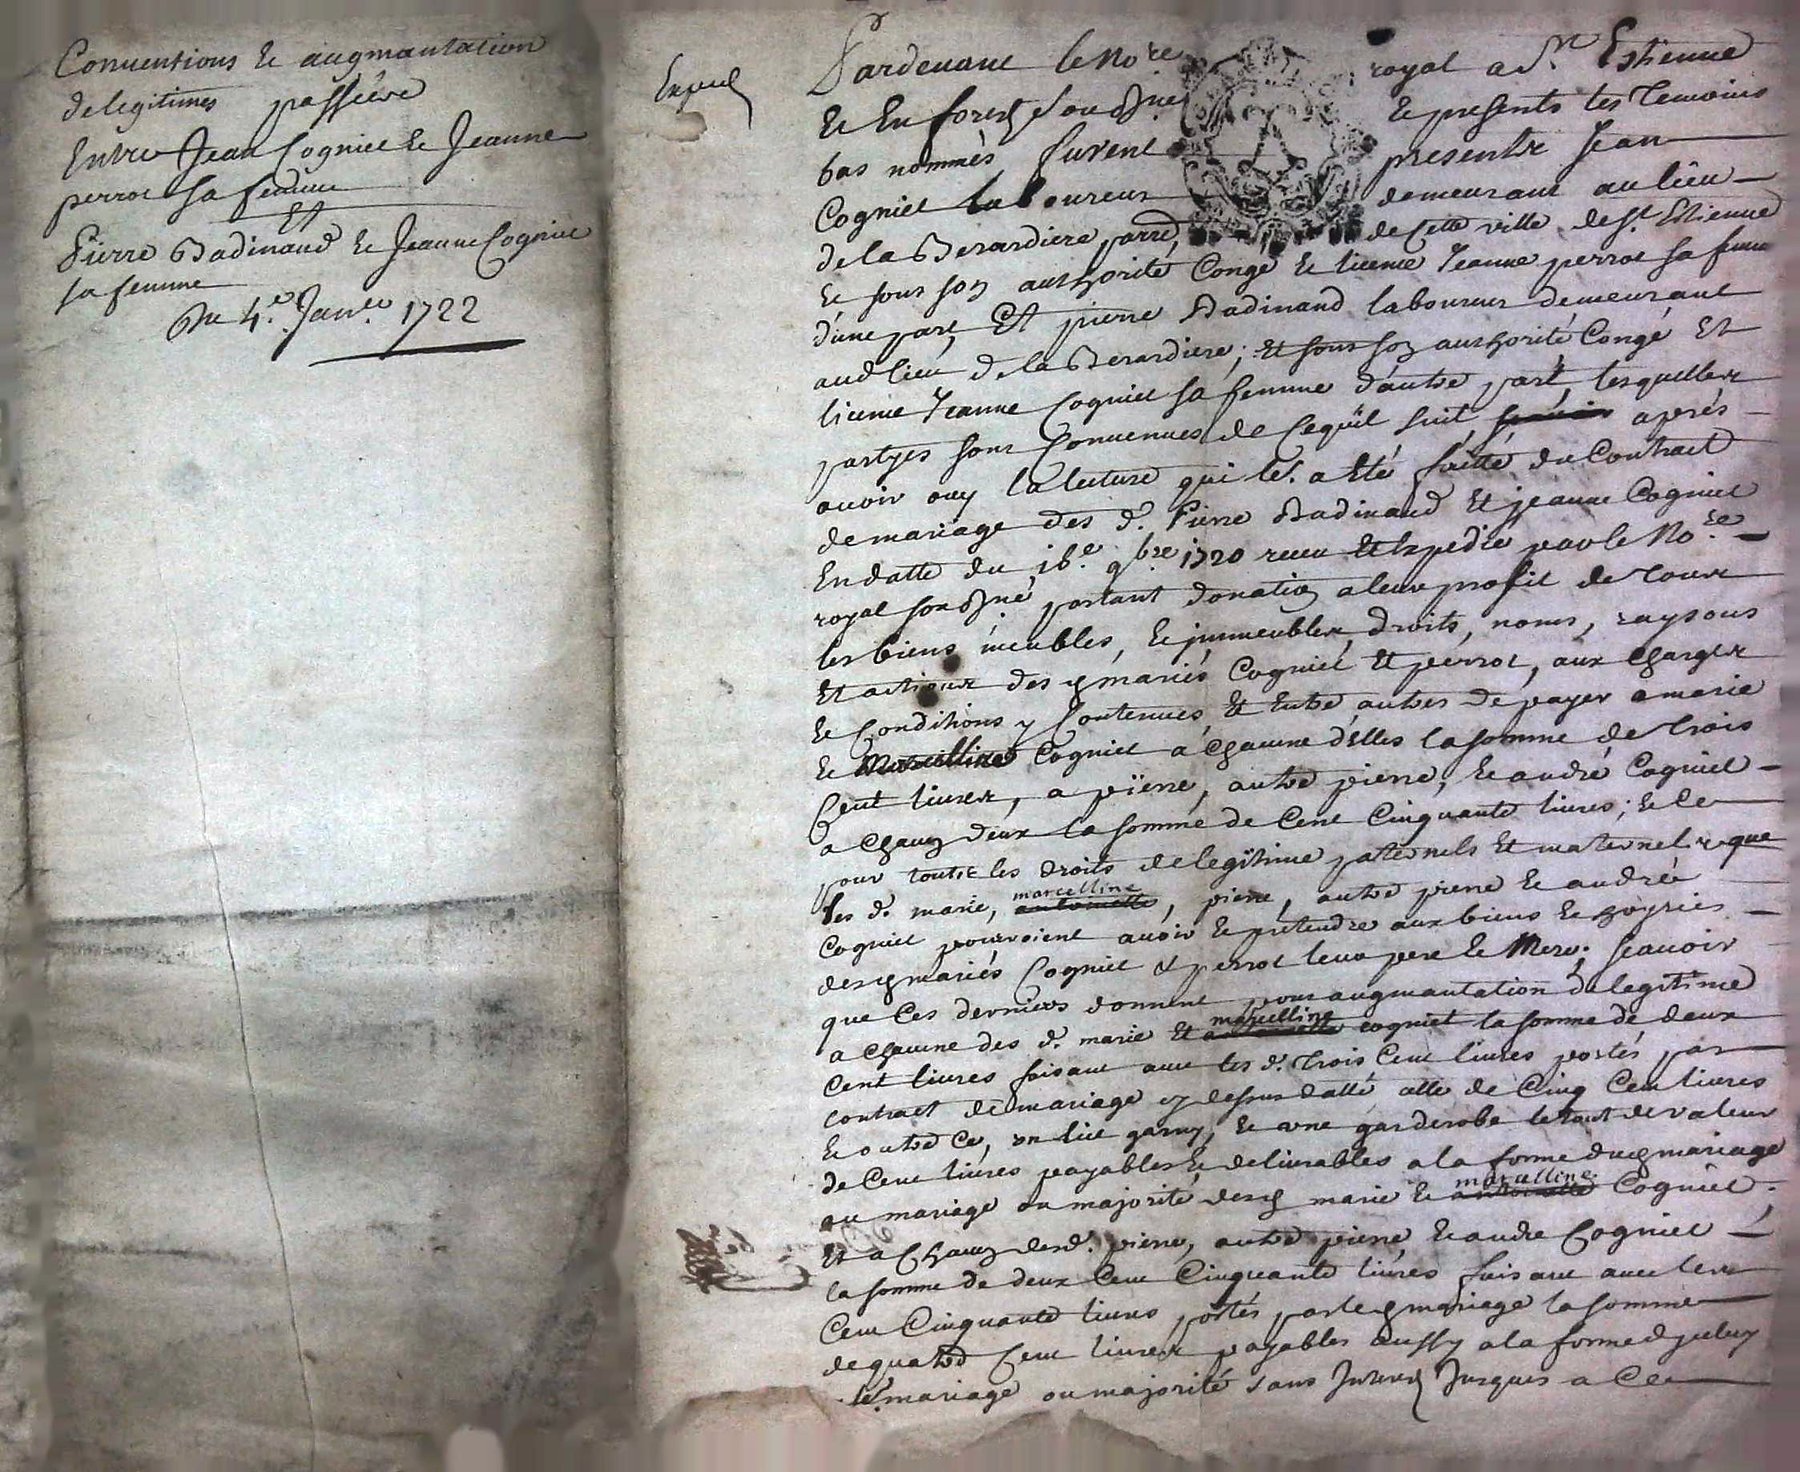 Conventions & augmantation
de legitimes passées
Entre Jean Cogniet & Jeanne
perrot sa femme
Et
Pierre Badinand & Jeanne Cogniet
sa femme
Du 4.e Janv.er 1722
Expedié
Pardevant le No.re royal a St. Estienne
& En forest soubsigné & presents les temoins
bas nommés furent presents Jean
Cogniet laboureur demeurant au lieu
de la Berardiere parr.e de cette ville de St. Estienne
& sous son authorité Congé & licence Jeanne perrot sa femme
d'une part, Et pierre Badinand laboureur demeurant
aud lieu de la Berardiere; Et sous son authorité Congé Et
licence Jeanne Cogniet sa femme d'autre part, lesquelles
partyes sont Convenues de Cequil suit, aprés
avoir ouy la lecture qui le.s a Eté faitte du Contract
de mariage des d. Pierre Badinand Et jeanne Cogniet
En datte du 16.e 9bre 1720 receu Et Expedié par le No.re
royal soubsigné, portant donation a leur profit de tous
les biens meubles, & immeubles, droits, noms, raysons
Et actions desd mariés Cogniet Et perrot, aux charges
& Conditions y Contenues, & Entre autres de payer a marie
& Marcelline Cogniet a chacune d'Elles la somme de trois
Cent livres, a pierre, autre pierre, & andré Cogniet
a chacun d'eux la somme de Cent Cinquante livres; & Ce
pour touts les droits de legitime paternels Et maternels que
les d. marie, marcelline antoinette, pierre, autre pierre & andrée
Cogniet pourroient avoir & pretendre aux biens & hoyries
desd mariés Cogniet & perrot leur pere & Mere; scavoir
que Ces derniers donnent pour augmantation de legitime
a chacune des d. marie Et marcelline cogniet la somme de deux
Cent livres faisant avec les d. trois Cent livres portés par
contract de mariage cy dessus datté celle de Cinq Cent livres
& outre Ce, un lict garny, & une garderobe le tout de valeur
de Cent livres payables & delivrables a la forme dud mariage
au mariage ou majorité desd marie & marcelline antoinette Cogniet;
Et a Chacun desd. pierre, autre pierre & andre Cogniet
la somme de deux Cent Cinquante livres faisant avec les
Cent Cinquante livres portés par led mariage la somme
de quatre Cent livres payables aussy a la forme d'jceluy
mariage ou majorité sans Interest Jusques a Ce